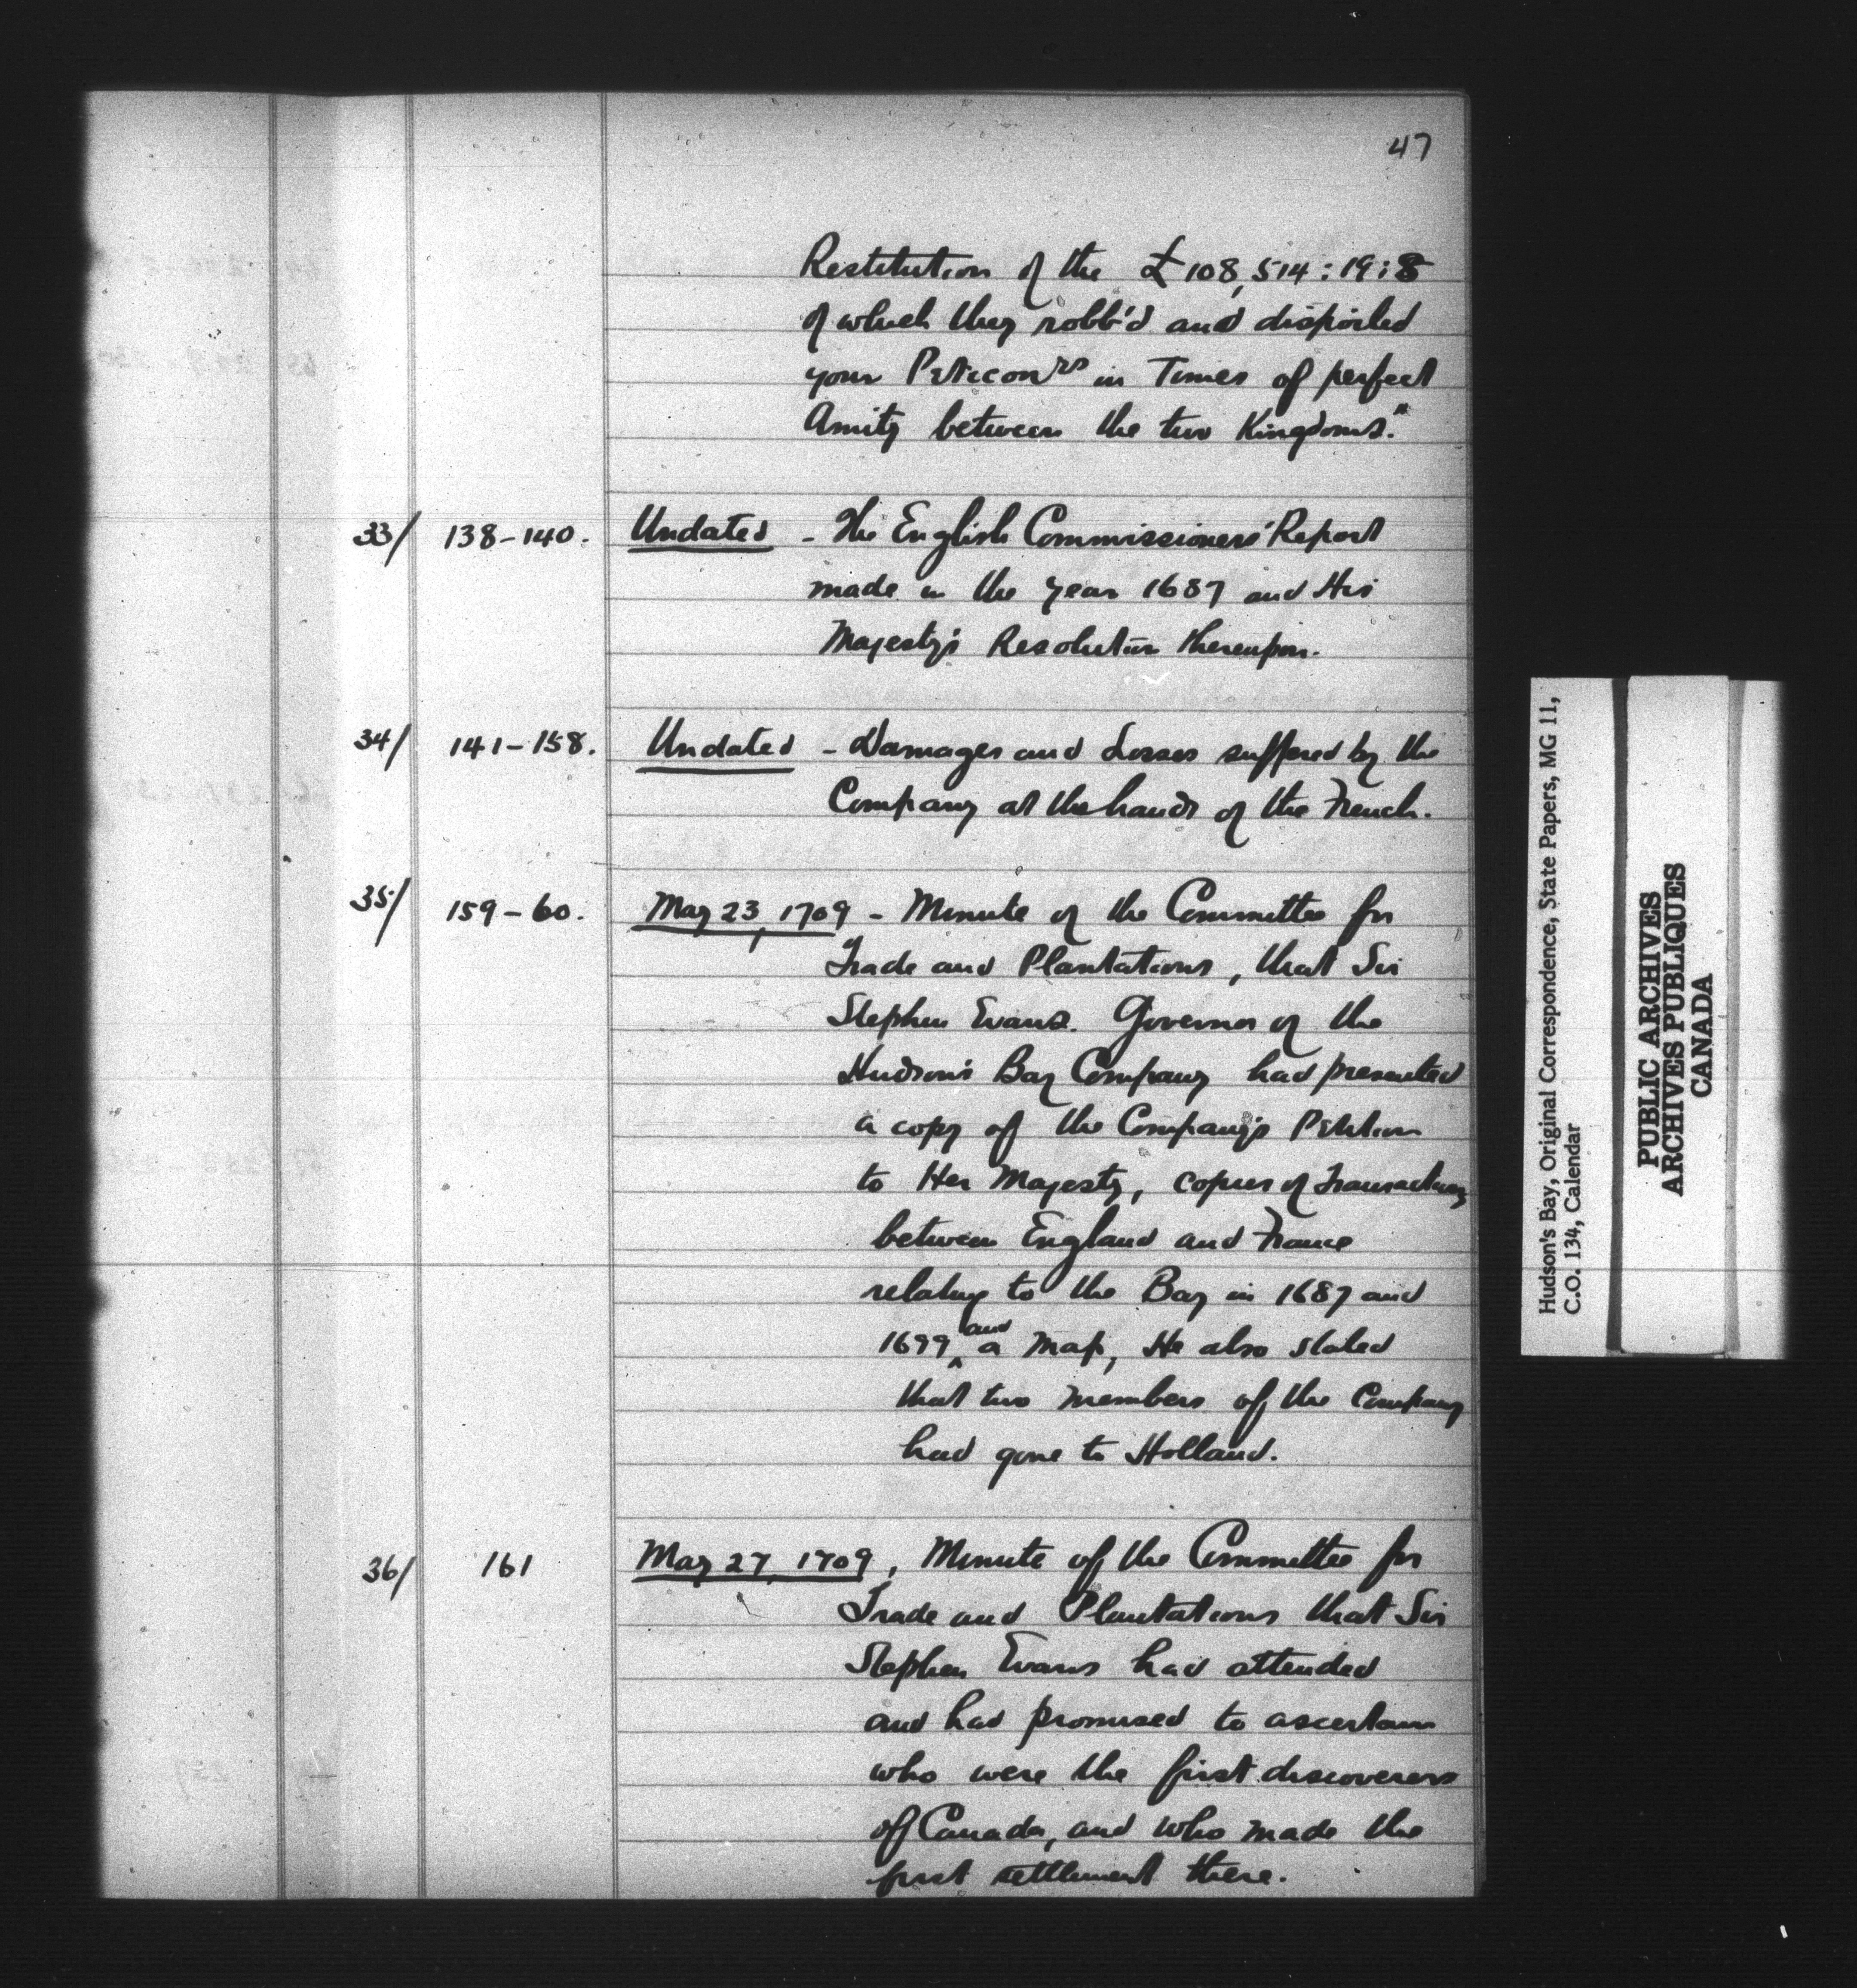 47
Restitution of the £108,514:19:8
of which they robb'd and dispoiled
your Peticonrs in Times of perfect
Amity between the two Kingdoms."
33/ 138-140. Undated - The English Commissioners' Report
made in the year 1687 and His
Majesty's Resolution thereupon.
34/ 141-158. Undated - Damages and Losses suffered by the
Company at the hands of the French.
35/ 159-60. May 23, 1709 - Minute of the Committee for
Trade and Plantations, that Sir
Stephen Evans. Governor of the
Hudson's Bay Company had presented
a copy of the Company's Petition
to Her Majesty, copies of Transactions
between England and France
relating to the Bay in 1687 and
1699, and a map, He also stated
that two members of the Company
had gone to Holland.
36/ 161 May 27, 1709, Minute of the Committee for
Trade and Plantations that Sir
Stephen Evans had attended
and had promised to ascertain
who were the first discoverers
of Canada, and who made the
first settlement there.
Hudson's Bay, Original Correspondence, State Papers, MG 11,
C.O. 134, Calendar
PUBLIC ARCHIVES
ARCHIVES PUBLIQUES
CANADA